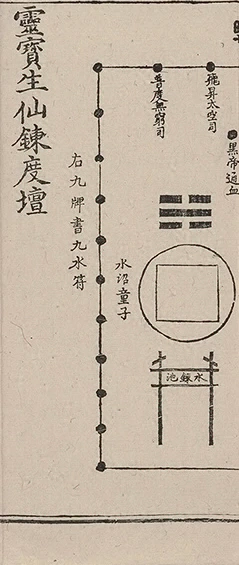 黑帝通血
飛昇太空司
普度無窮司
水鍊池
水沼童子
右九牌書九水符
靈寶生仙鍊度壇